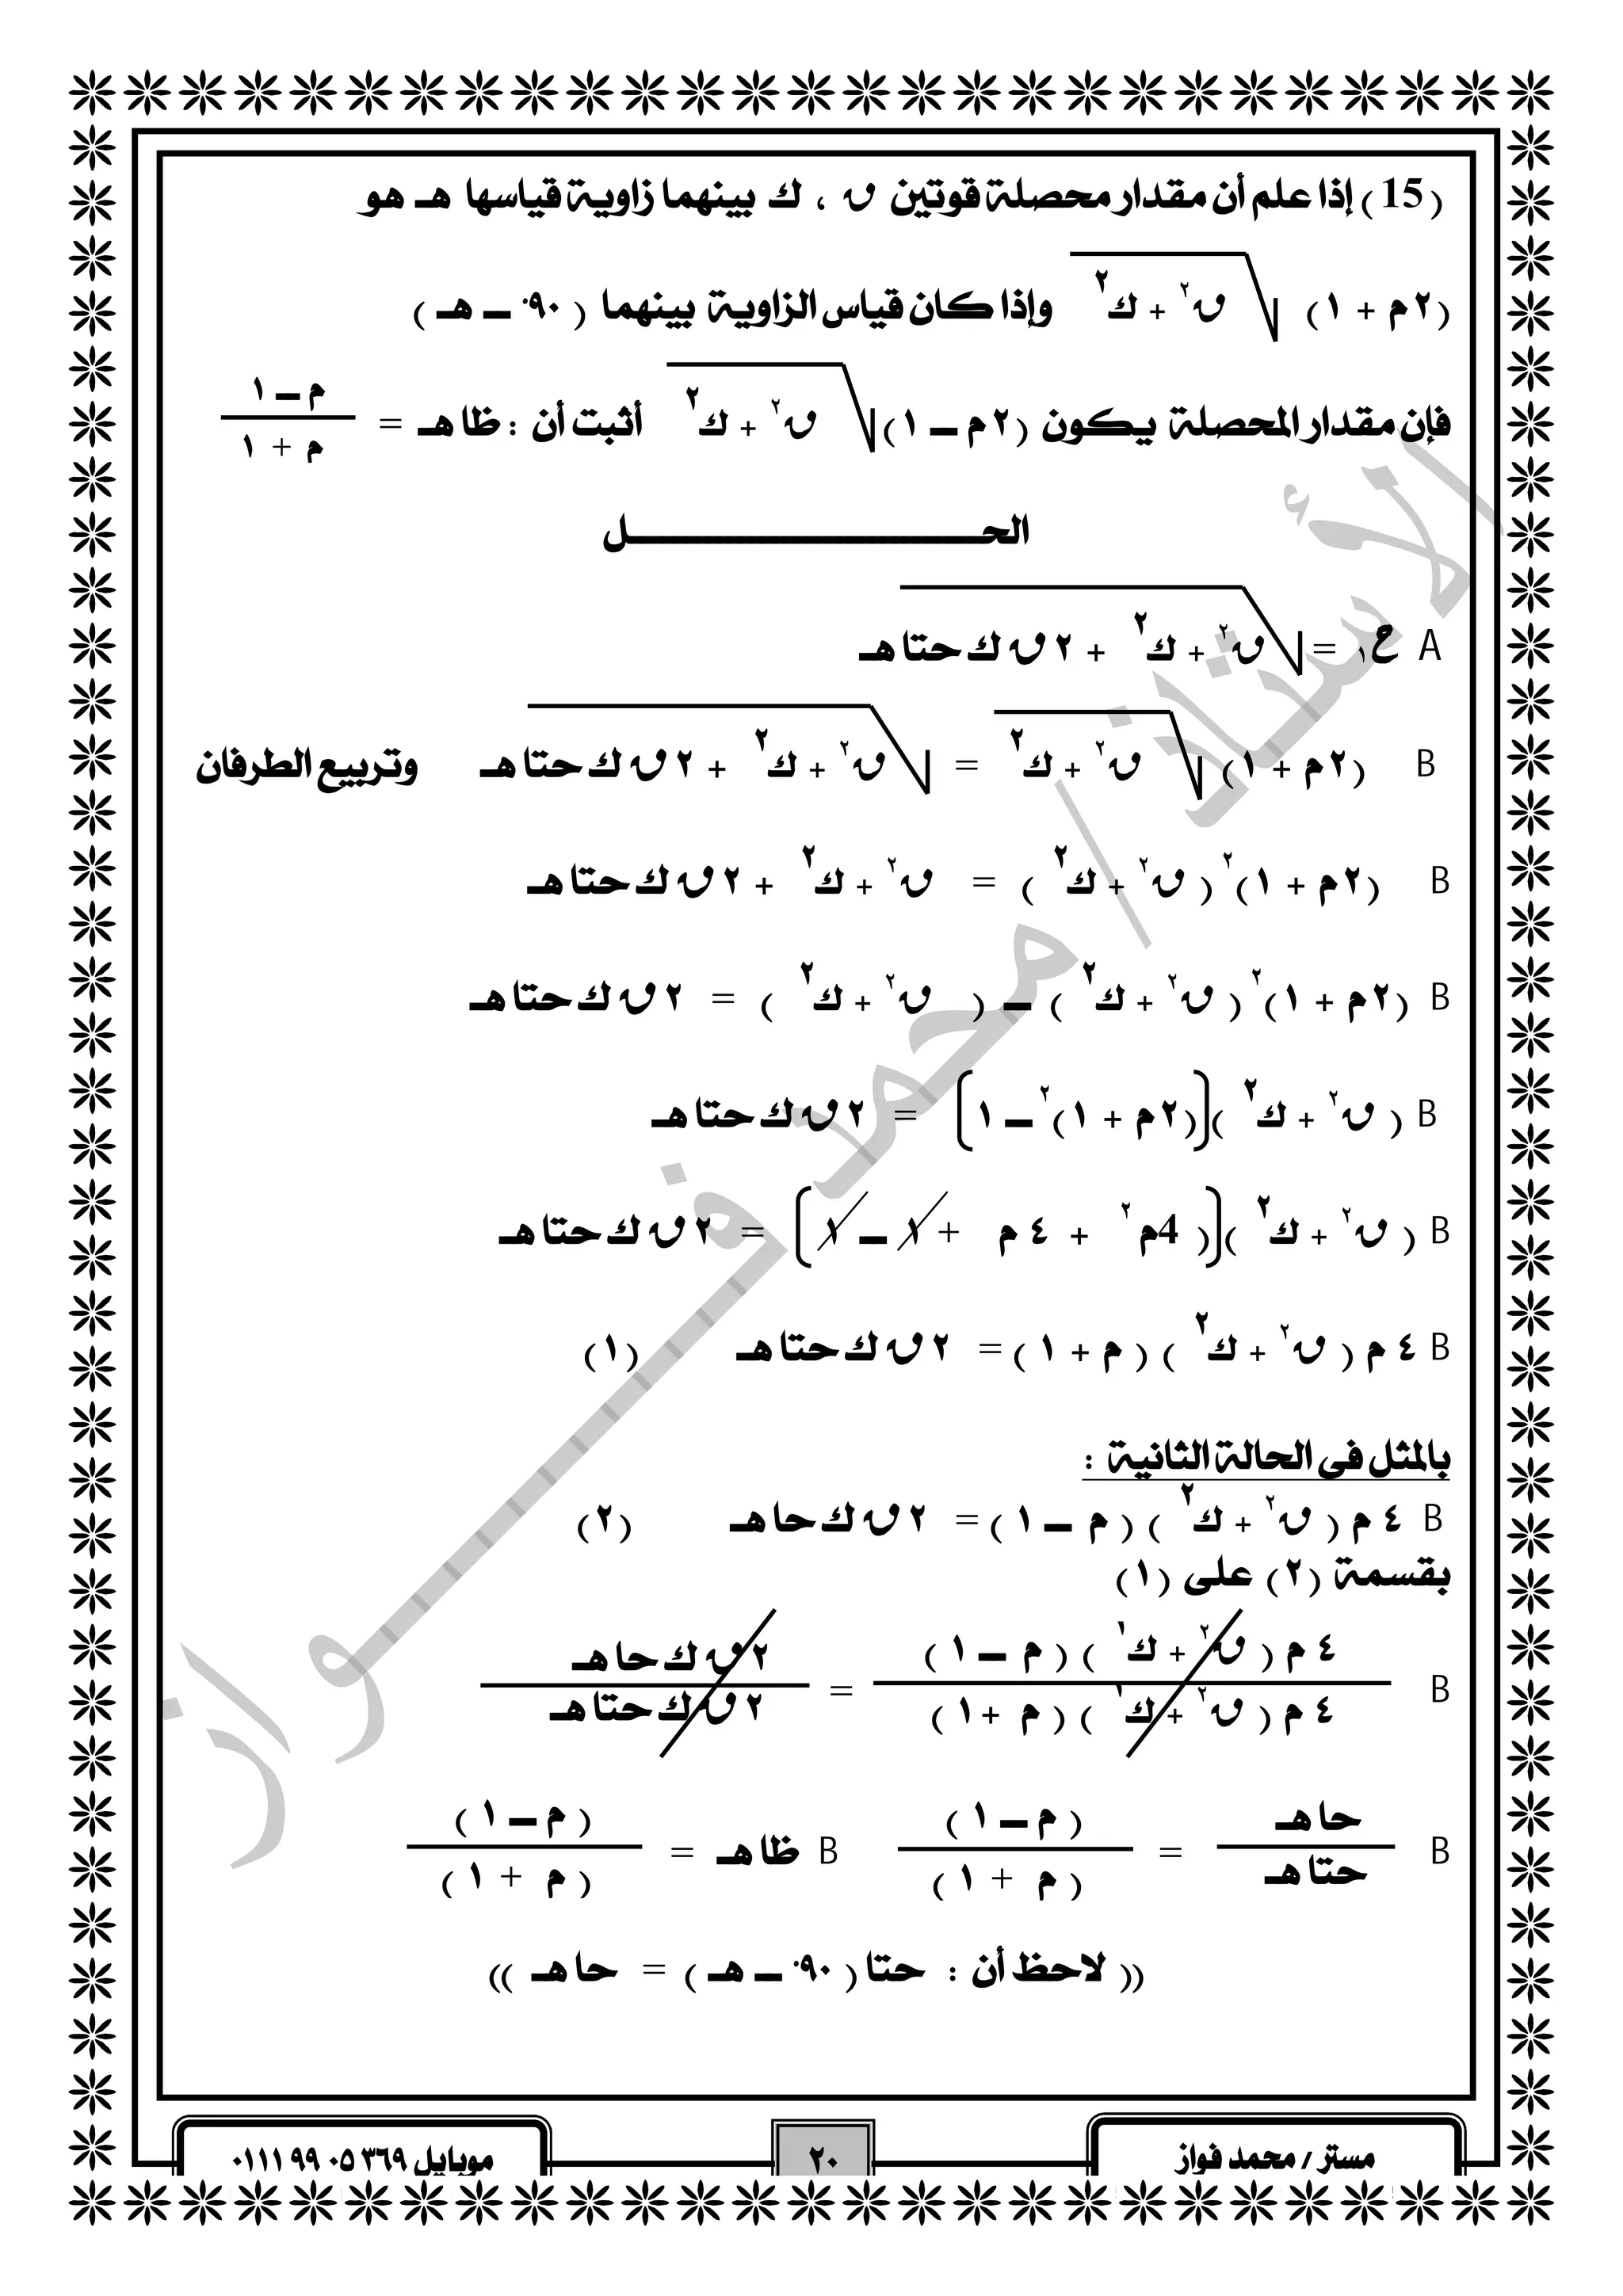 (15) إذا علم أن مقدار محصلة قوتين ق ، ك بينهما زاوية قياسها هـ هو
(٢م + ١) √(ق٢ + ك٢) وإذا كان قياس الزاوية بينهما (٩٠° ـ هـ)
فإن مقدار المحصلة يكون (٢م ـ ١) √(ق٢ + ك٢) أثبت أن : ظا هـ = (م ـ ١) / (م + ١)
الحـــــــــــــــــــــــل
A ح١ = √(ق٢ + ك٢ + ٢ ق ك حتا هـ)
B (٢م + ١) √(ق٢ + ك٢) = √(ق٢ + ك٢ + ٢ ق ك حتا هـ) وتربيع الطرفان
B (٢م + ١)٢ (ق٢ + ك٢) = ق٢ + ك٢ + ٢ ق ك حتا هـ
B (٢م + ١)٢ (ق٢ + ك٢) ـ (ق٢ + ك٢) = ٢ ق ك حتا هـ
B (ق٢ + ك٢) ((٢م + ١)٢ ـ ١) = ٢ ق ك حتا هـ
B (ق٢ + ك٢) ((4م٢ + ٤ م + ١ ـ ١) = ٢ ق ك حتا هـ
B ٤ م (ق٢ + ك٢) (م + ١) = ٢ ق ك حتا هـ (١)
بالمثل فى الحالة الثانية :
B ٤ م (ق٢ + ك٢) (م ـ ١) = ٢ ق ك حا هـ (٢)
بقسمة (٢) على (١)
B ٤ م (ق٢ + ك٢) (م ـ ١) / ٤ م (ق٢ + ك٢) (م + ١) = ٢ ق ك حا هـ / ٢ ق ك حتا هـ
B حا هـ / حتا هـ = (م ـ ١) / (م + ١) B ظا هـ = (م ـ ١) / (م + ١)
(( لاحظ أن : حتا (٩٠° ـ هـ) = حا هـ ))
مستر / محمد فواز
٢٠
موبايل ٣٦٩ ٠٥ ٩٩ ٠١١١
الأستاذ / محمد فـــــــواز